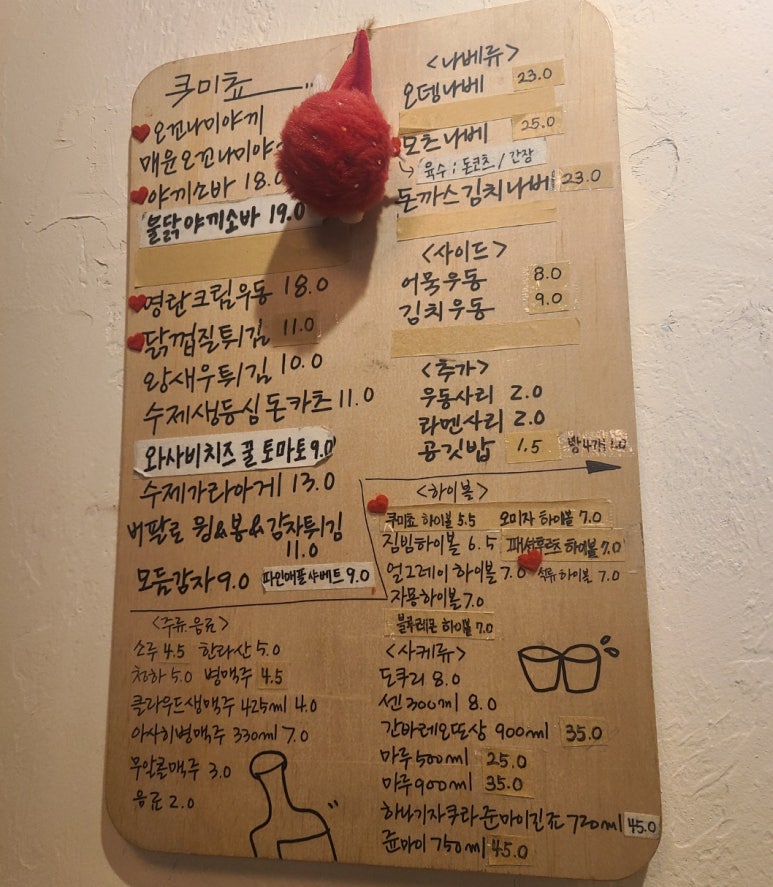 쿠미쵸
오꼬나미야끼
매운오꼬나미야
야끼소바 18.0
불닭야끼소바 19.0
명란크림우동 18.0
닭껍질튀김 11.0
왕새우튀김 10.0
수제생등심돈카츠 11.0
와사비치즈꿀토마토 9.0
수제가라아게 13.0
버팔로 윙&봉&감자튀김
11.0
모듬감자 9.0 파인애플샤베트 9.0
<주류.음료>
소주 4.5 한라산 5.0
청하 5.0 병맥주 4.5
클라우드생맥주 425ml 4.0
아사히병맥주 330ml 7.0
무알콜맥주 3.0
음료 2.0
<나베류>
오뎅나베 23.0
모츠나베 25.0
육수 : 돈코츠 / 간장
돈까스김치나베 23.0
<사이드>
어묵우동 8.0
김치우동 9.0
<추가>
우동사리 2.0
라멘사리 2.0
공깃밥 1.5 1.0
<하이볼>
쿠미쵸 하이볼 5.5 오미자 하이볼 7.0
짐빔하이볼 6.5 패션후르츠 하이볼 7.0
얼그레이 하이볼 7.0 석류 하이볼 7.0
자몽하이볼 7.0
블루레몬 하이볼 7.0
<사케류>
도쿠리 8.0
센 300ml 8.0
간바레오또상 900ml 35.0
마루 500ml 25.0
마루 900ml 35.0
하나기자쿠라 쥰마이긴죠 720ml 45.0
쥰마이 750ml 45.0